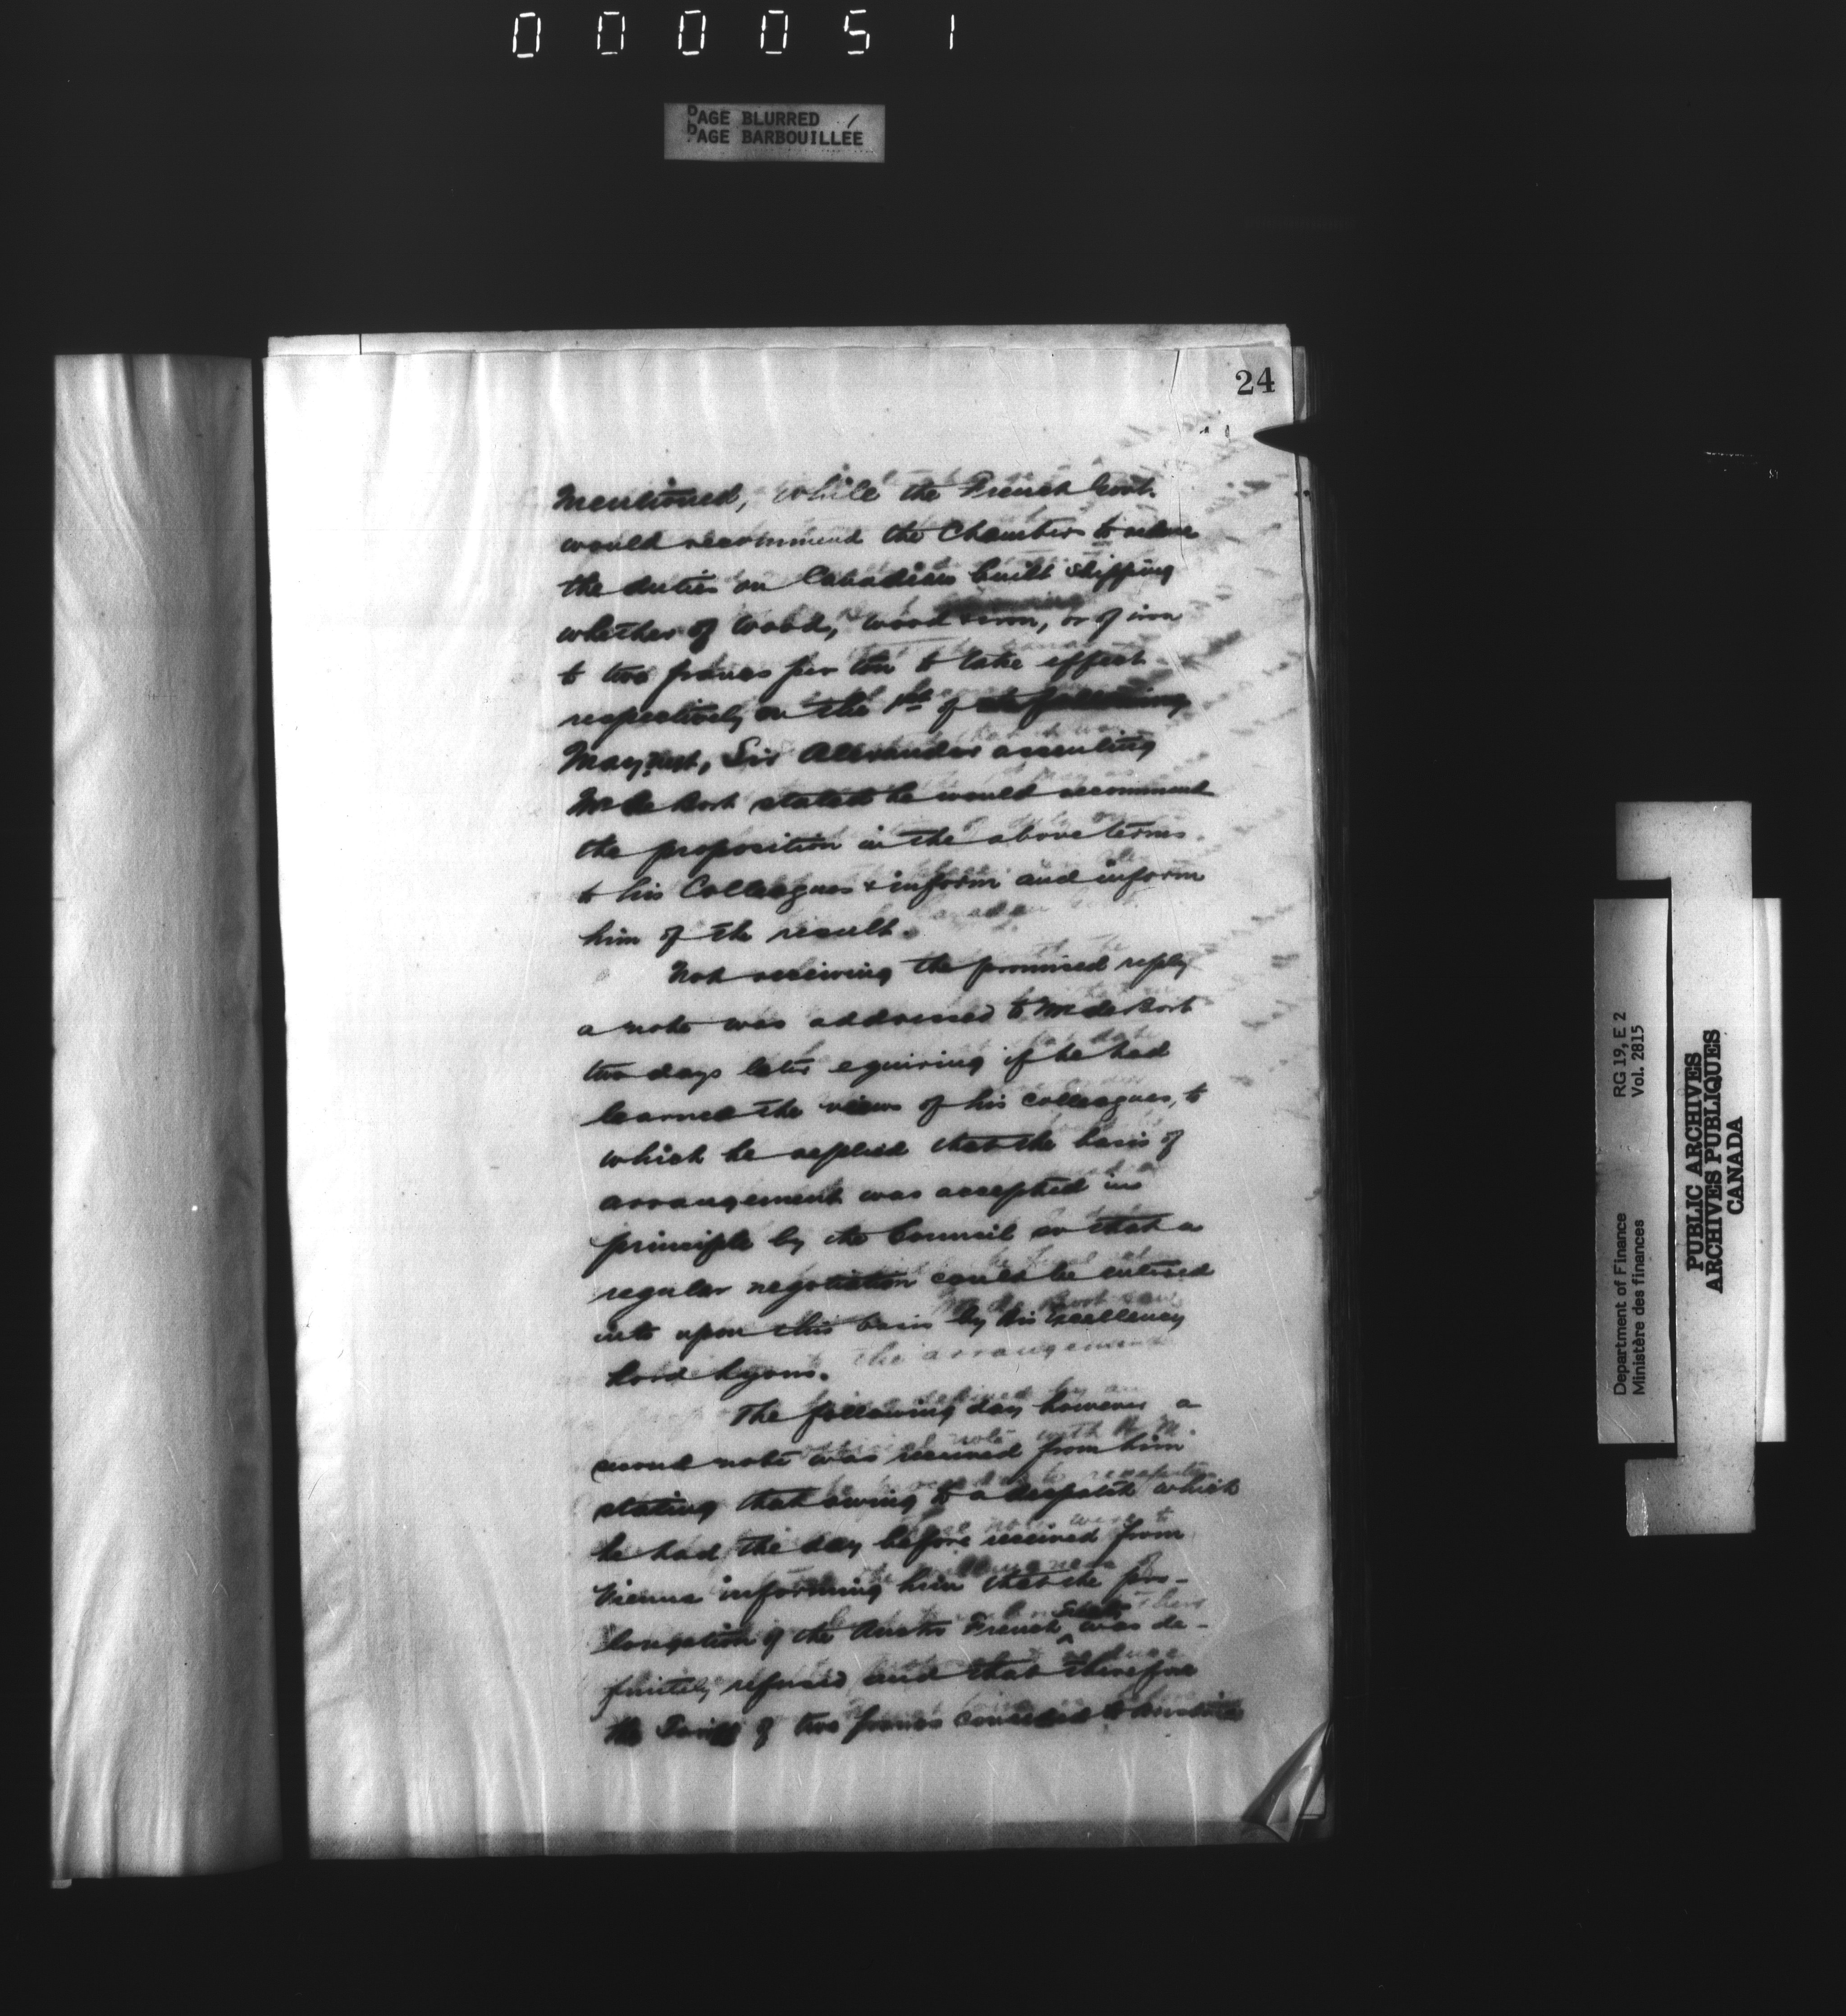 000051
PAGE BLURRED
PAGE BARBOUILLÉE
24
mentioned, while the French Govt.
would recommend the Chambers to reduce
the duties on Canadian built shipping
whether of wood, wood & iron, or of iron
to two francs per ton to take effect
respectively on the 1st of the following
May next, Sir Alexander assenting
Mr de Bort stated he would recommend
the proposition in the above terms
to his Colleagues & inform and inform
him of the result.
Not receiving the promised reply
a note was addressed to Mr de Bort
two days later equiring if he had
learned the views of his colleagues, to
which he replied that the basis of
arrangement was accepted in
principle by the Council so that a
regular negotiation could be entered
into upon this basis by his Excellency
Lord Lyons.
The following day however a
second note was received from him
stating that owing to a despatch which
he had the day before received from
Vienna informing him that the pro-
longation of the Austro French was de-
finitely refused and that therefore
the Tariff of two francs conceded to
Department of Finance RG 19, E 2
Ministère des finances Vol. 2815
PUBLIC ARCHIVES
ARCHIVES PUBLIQUES
CANADA